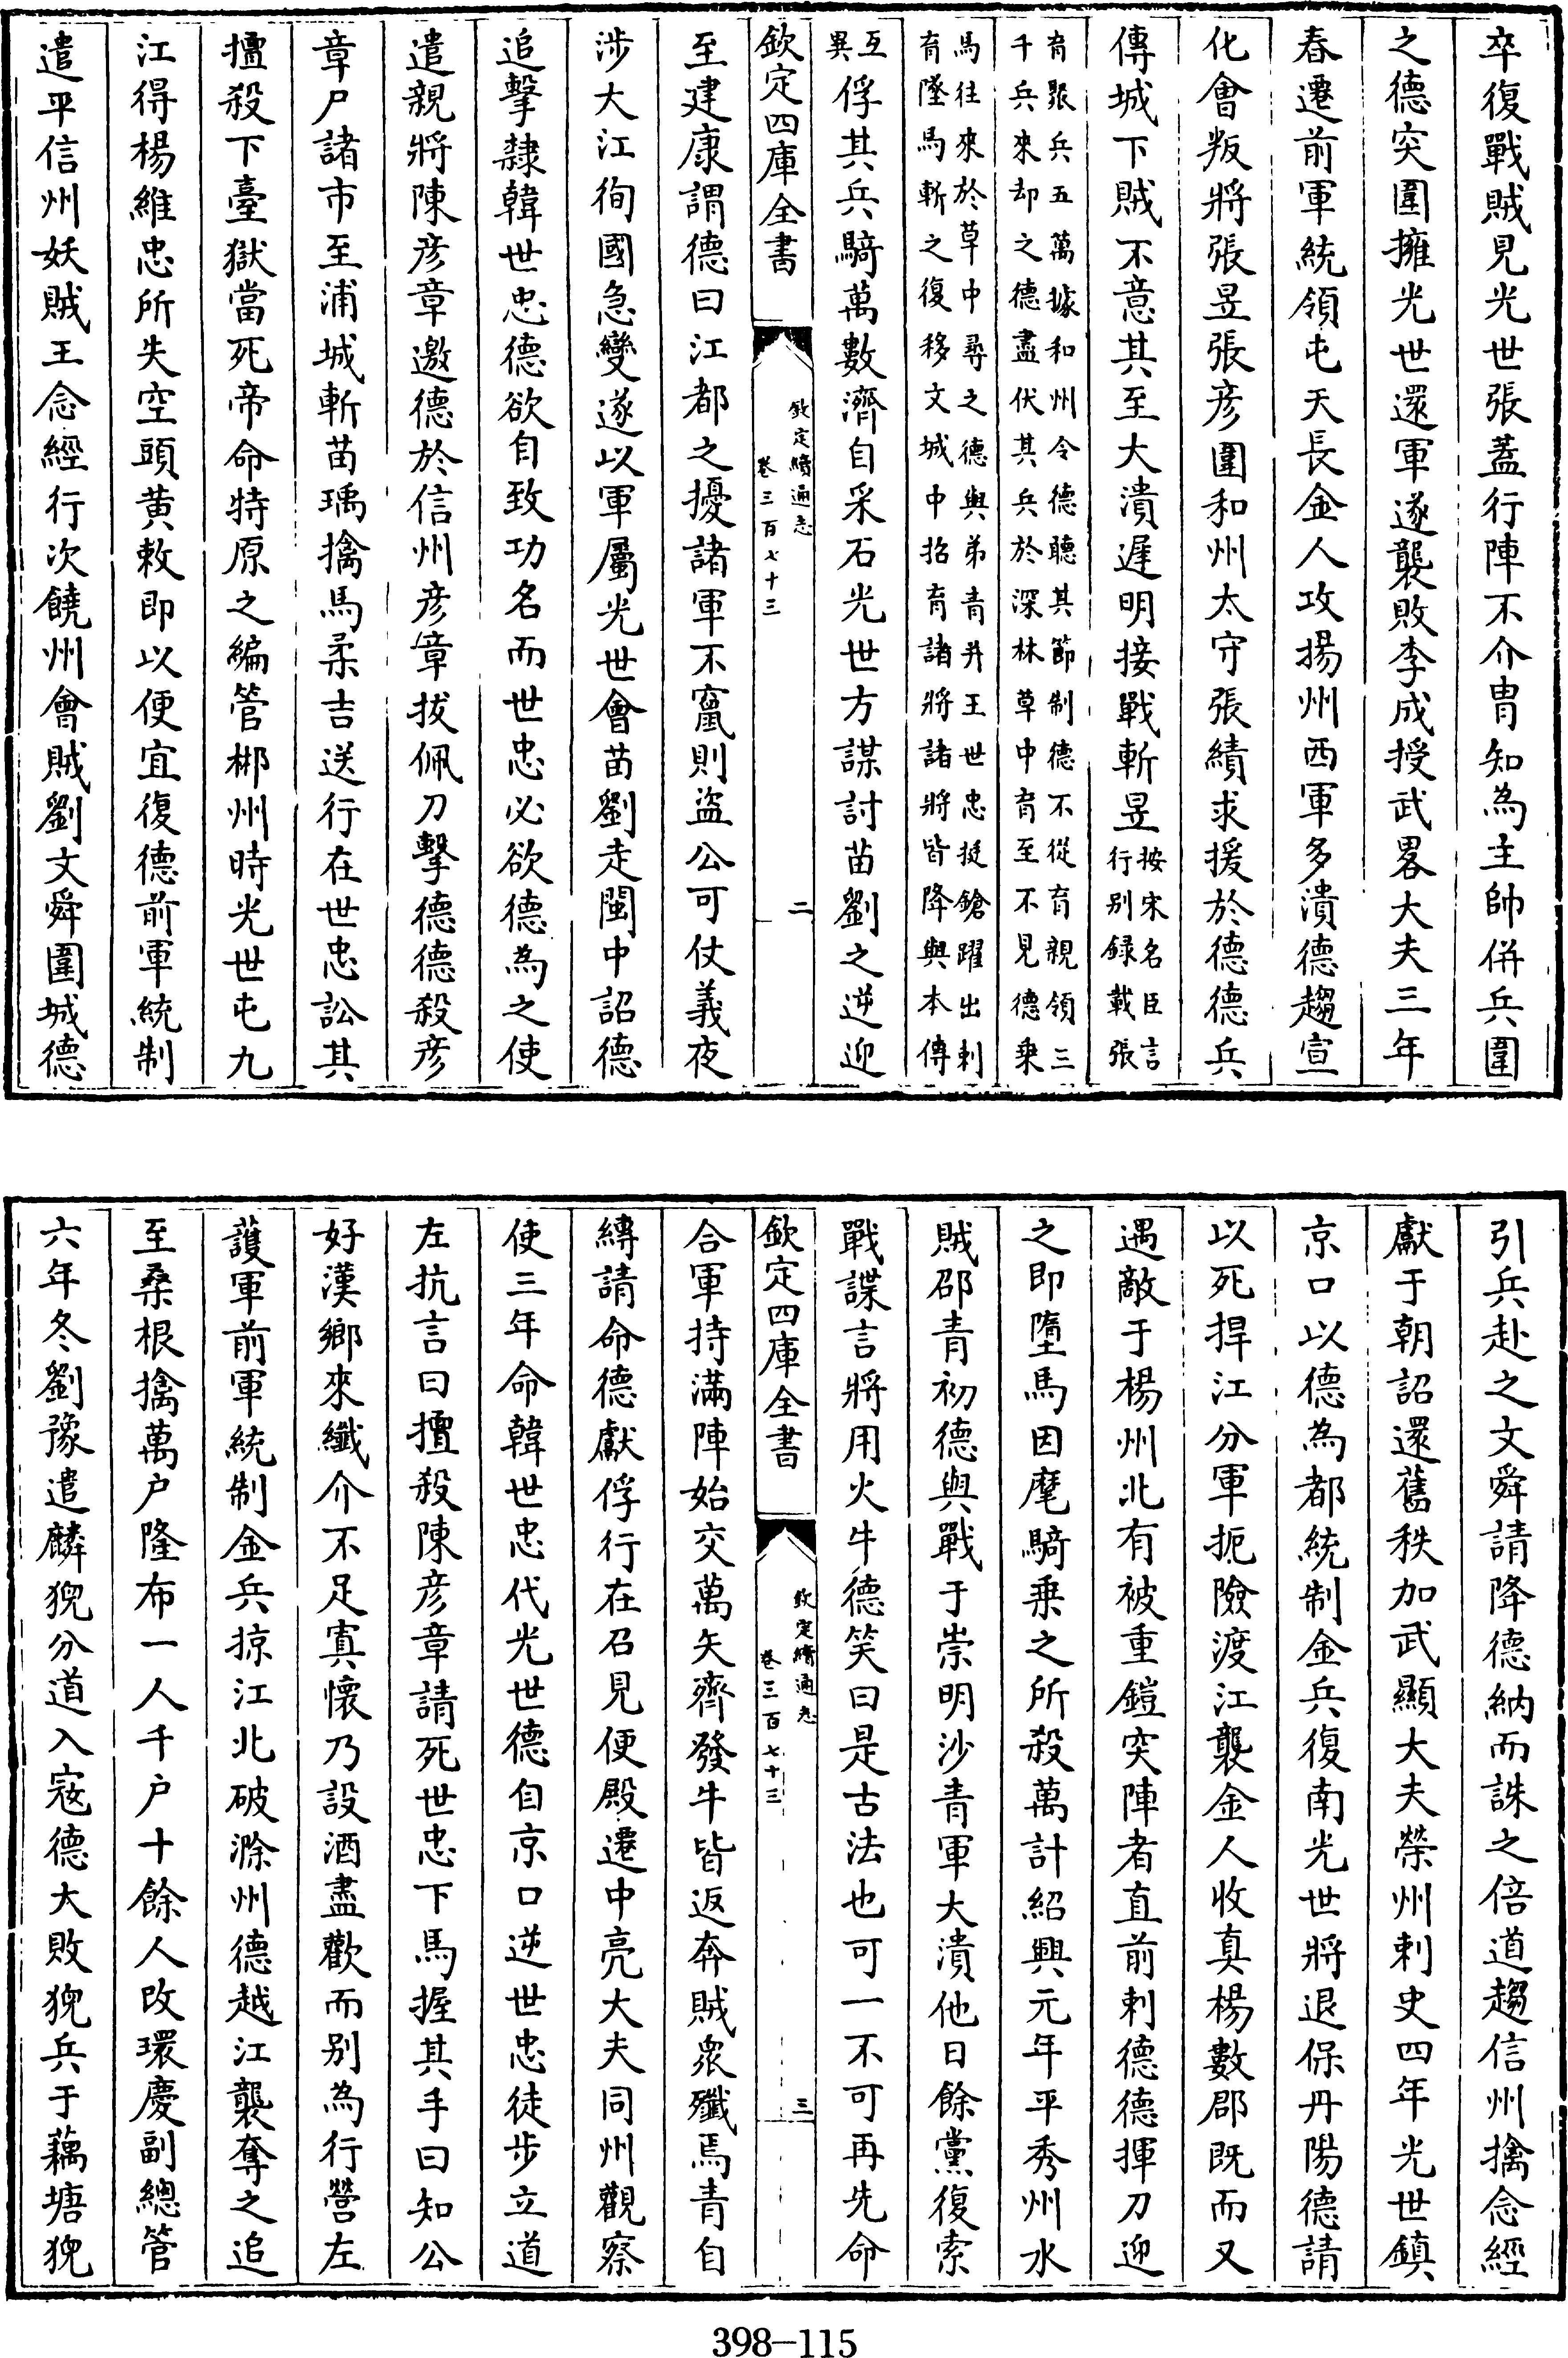 卒復戰賊見光世張蓋行陣不介冑知為主帥併兵圍
之德突圍擁光世還軍遂襲敗李成授武畧大夫三年
春遷前軍統領屯天長金人攻揚州西軍多潰德趨宣
化會叛將張昱張彦圍和州太守張績求援於德德兵
傳城下賊不意其至大潰遲明接戰斬昱按宋名臣言
行别録載張
育聚兵五萬據和州令德聽其節制德不從育親領三
千兵來却之德盡伏其兵於深林草中育至不見德乗
馬往來於草中尋之德與弟青幷王世忠挺鎗躍出刺
育墜馬斬之復移文城中招育諸將諸將皆降與本傳
互
異俘其兵騎萬數濟自采石光世方謀討苗劉之逆迎
欽定四庫全書
欽定續通志
卷三百七十三
二
至建康謂德曰江都之擾諸軍不竄則盜公可仗義夜
涉大江徇國急變遂以軍屬光世會苗劉走閩中詔德
追擊隸韓世忠德欲自致功名而世忠必欲德為之使
遣親將陳彦章邀德於信州彦章拔佩刀擊德德殺彦
章尸諸市至浦城斬苗瑀擒馬柔吉送行在世忠訟其
擅殺下臺獄當死帝命特原之編管郴州時光世屯九
江得楊維忠所失空頭黄敕即以便宜復德前軍統制
遣平信州妖賊王念經行次饒州會賊劉文舜圍城德
引兵赴之文舜請降德納而誅之倍道趨信州擒念經
獻于朝詔還舊秩加武顯大夫榮州刺史四年光世鎮
京口以德為都統制金兵復南光世將退保丹陽德請
以死捍江分軍扼險渡江襲金人收真楊數郡既而又
遇敵于楊州北有被重鎧突陣者直前刺德德揮刀迎
之即墮馬因麾騎乗之所殺萬計紹興元年平秀州水
賊邵青初德與戰于崇明沙青軍大潰他日餘黨復索
戰諜言將用火牛德笑曰是古法也可一不可再先命
欽定四庫全書
欽定續通志
卷三百七十三
三
合軍持滿陣始交萬矢齊發牛皆返奔賊衆殲焉青自
縛請命德獻俘行在召見便殿遷中亮大夫同州觀察
使三年命韓世忠代光世德自京口逆世忠徒步立道
左抗言曰擅殺陳彦章請死世忠下馬握其手曰知公
好漢鄉來纖介不足寘懷乃設酒盡歡而别為行營左
護軍前軍統制金兵掠江北破滁州德越江襲奪之追
至桑根擒萬户隆布一人千户十餘人改環慶副總管
六年冬劉豫遣麟猊分道入寇德大敗猊兵于藕塘猊
398-115